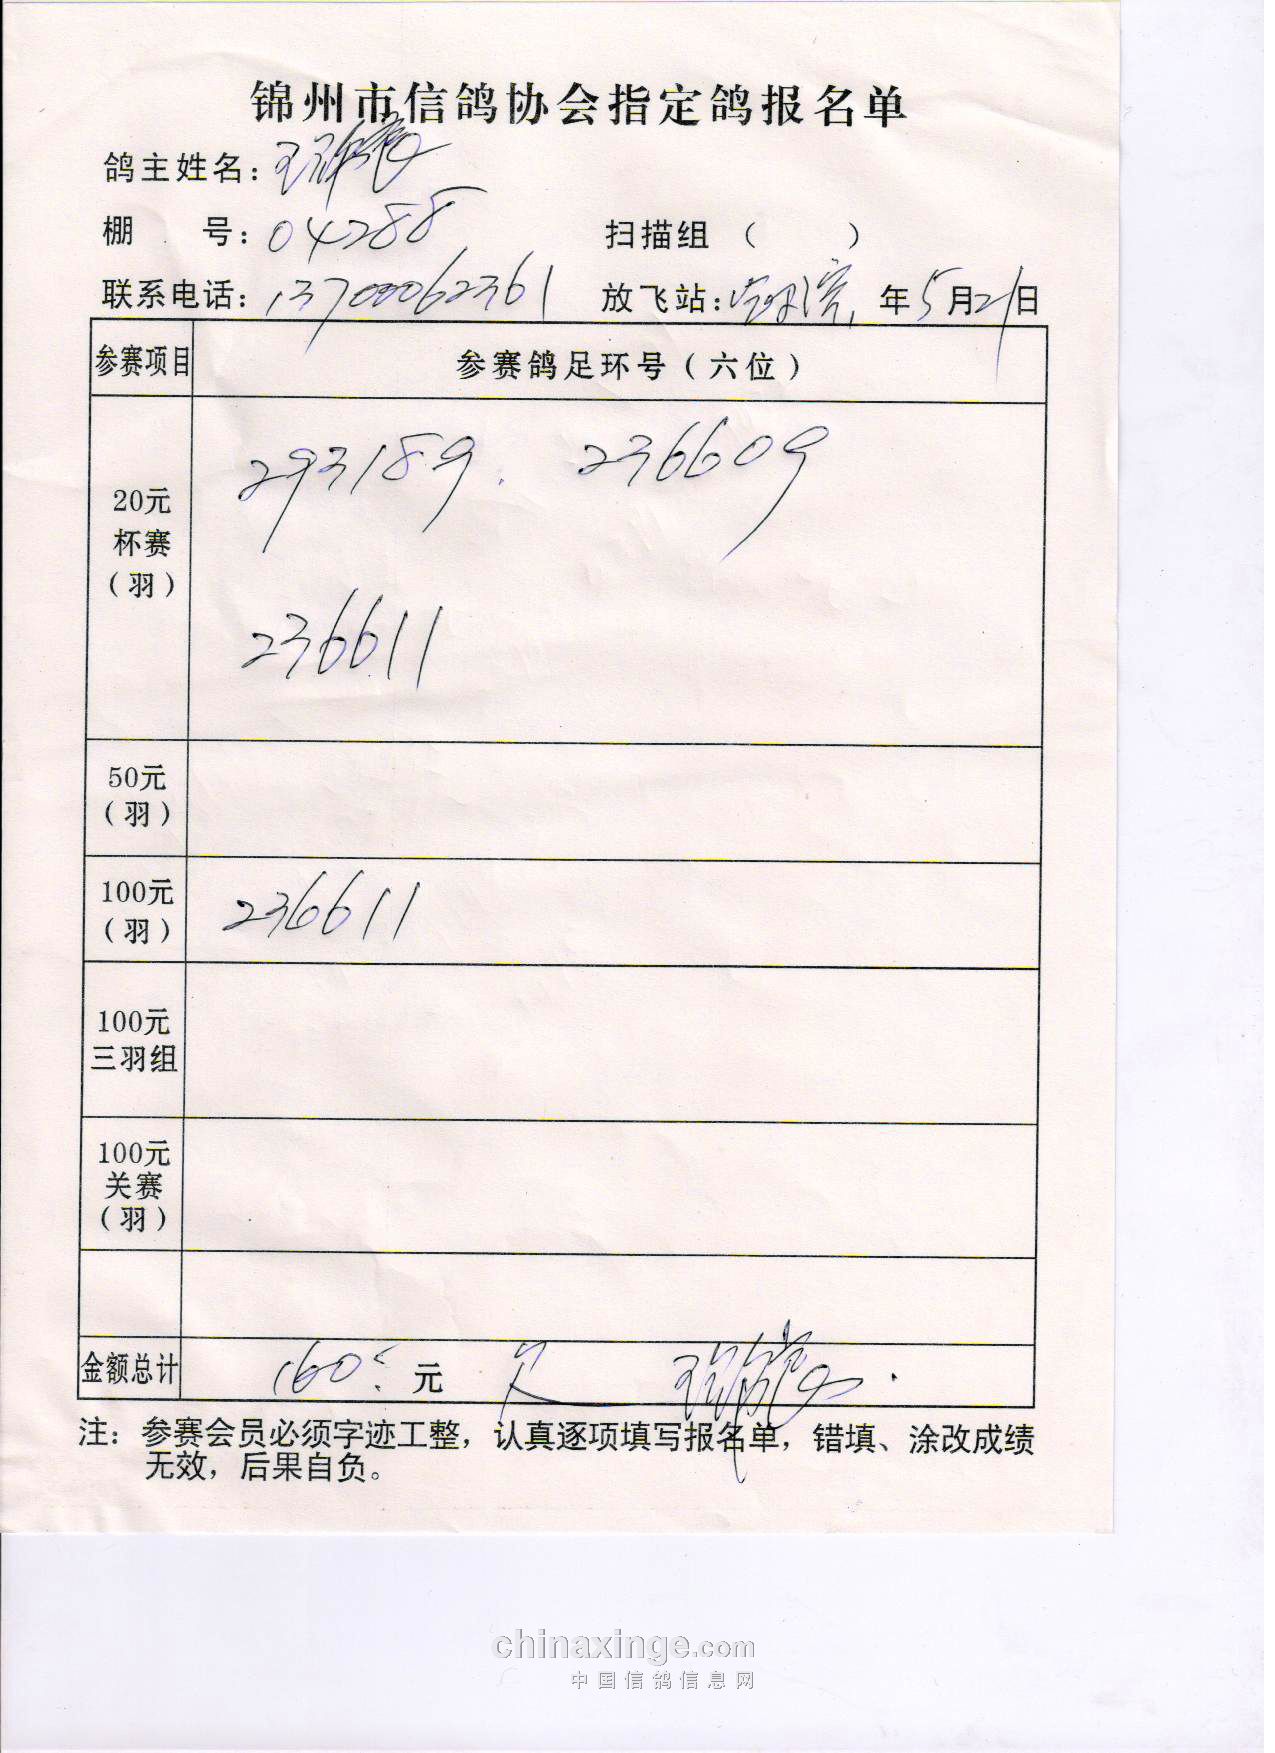 锦州市信鸽协会指定鸽报名单
鸽主姓名：王
棚 号：04288 扫描组（ ）
联系电话：13700062361 放飞站： 年5月21日
参赛项目 参赛鸽足环号（六位）
20元
杯赛
（羽）
293189. 236609
236611
50元
（羽）
100元
（羽）
236611
100元
三羽组
100元
关赛
（羽）
金额总计 160 元 欠 王
注：参赛会员必须字迹工整，认真逐项填写报名单，错填、涂改成绩
无效，后果自负。
chinaxinge.com
中国信鸽信息网